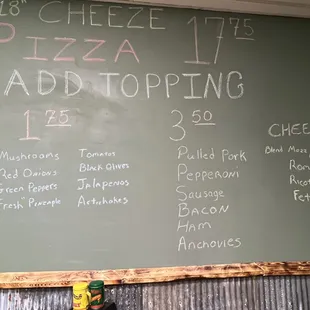 18" CHEEZE
PIZZA 17 75
ADD TOPPING
1 75
Mushrooms Tomatos
Red Onions Black Olives
Green Peppers Jalapenos
"Fresh" Pineapple Artichokes
3 50
Pulled Pork
Pepperoni
Sausage
BACON
Ham
Anchovies
CHEE
Blend Mozz
Ro
Ricot
Fet